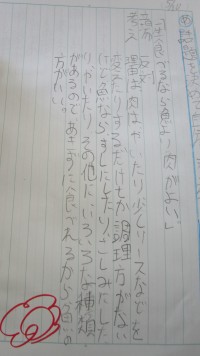 食べるなら魚より肉がよい」
反対
考え
理由 肉はやいたり少しソースなどを
変えたりするだけしか調理方がない
けど魚ならすしにしたり、さしみにした
り、やいたりその他に、いろいろな種類
があるのであきずに食べれるから魚の
方がいい。